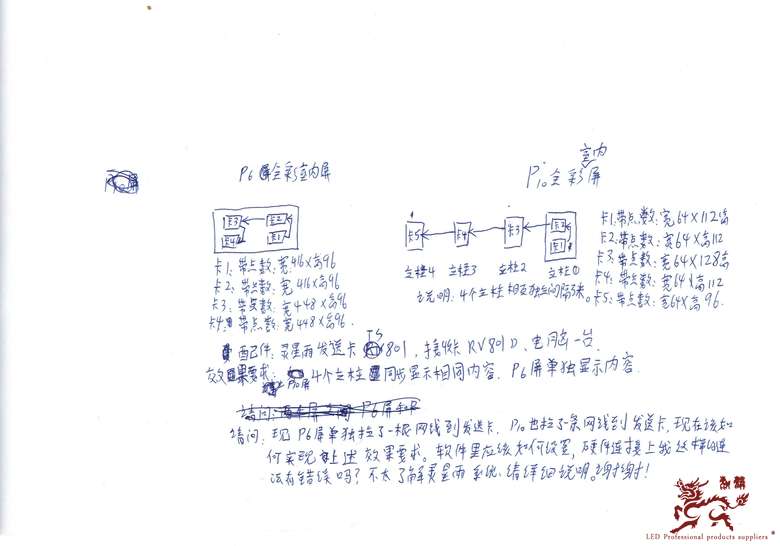 P6 全彩室内屏
室内
P10全彩屏
卡3 卡2
卡4 卡1
卡1：带点数：宽416×高96
卡2：带点数：宽416×高96
卡3：带点数：宽448×高96
卡4：带点数：宽448×高96
卡5 卡4 卡3 卡2
卡1
立柱4 立柱3 立柱2 立柱①
说明：4个立柱相互独立间隔3米。
卡1：带点数：宽64×112高
卡2：带点数：宽64×高112
卡3：带点数：宽64×128高
卡4：带点数：宽64×高112
卡5：带点数：宽64×高96.
配件：灵星雨发送卡TS801，接收卡RV801D、电脑一台
效果要求：P10屏4个立柱同步显示相同内容，P6屏单独显示内容.
请问：现P6屏单独拉了一根网线到发送卡，P10也拉了一条网线到发送卡，现在该如
何实现上述效果要求。软件里应该如何设置，硬件连接上我这样的连
法有错误吗？不太了解灵星雨系统，请详细说明。谢谢！
LED Professional products suppliers